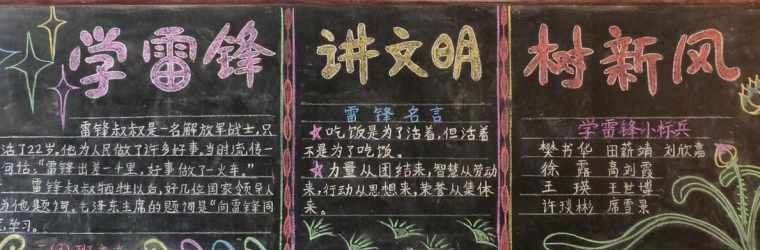 学雷锋
讲文明
树新风
雷锋叔叔是一名解放军战士,只
活了22岁,他为人民做了许多好事,当时流传一
句话:“雷锋出差一千里,好事做了一火车。”
雷锋叔叔牺牲以后,好几位国家领导人
为他题词。毛泽东主席的题词是“向雷锋同
志学习。
雷锋名言
吃饭是为了活着,但活着
不是为了吃饭。
力量从团结来,智慧从劳动
来,行动从思想来,荣誉从集体
来。
学雷锋小标兵
樊书华 田薪靖 刘欣嘉
徐露 高刘霞
王瑛 王世博
许琰彬 席雪景